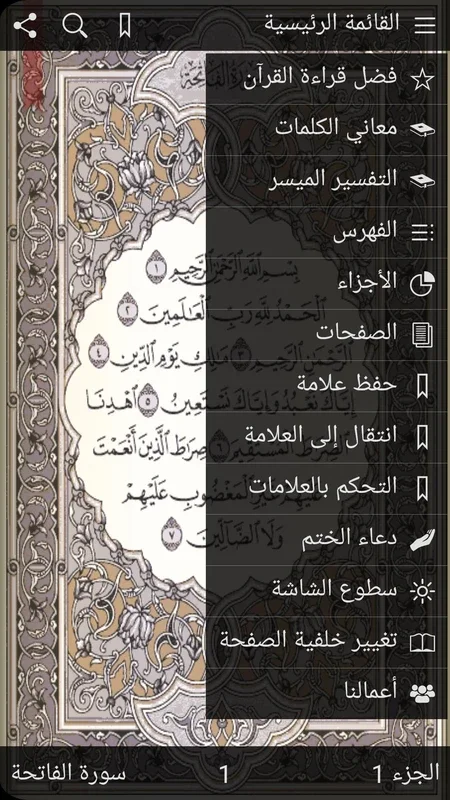 القائمة الرئيسية
فضل قراءة القرآن
معاني الكلمات
التفسير الميسر
الفهرس
الأجزاء
الصفحات
حفظ علامة
انتقال إلى العلامة
التحكم بالعلامات
دعاء الختم
سطوع الشاشة
تغيير خلفية الصفحة
أعمالنا
بِسْمِ اللَّهِ الرَّحْمَٰنِ الرَّحِيمِ ١
الْحَمْدُ لِلَّهِ رَبِّ الْعَالَمِينَ ٢
الرَّحْمَٰنِ الرَّحِيمِ ٣ مَالِكِ يَوْمِ الدِّينِ ٤
إِيَّاكَ نَعْبُدُ وَإِيَّاكَ نَسْتَعِينُ ٥ اهْدِنَا
الصِّرَاطَ الْمُسْتَقِيمَ ٦ صِرَاطَ الَّذِينَ أَنْعَمْتَ
عَلَيْهِمْ غَيْرِ الْمَغْضُوبِ عَلَيْهِمْ
وَلَا الضَّالِّينَ ٧
الجزء 1
1
سورة الفاتحة